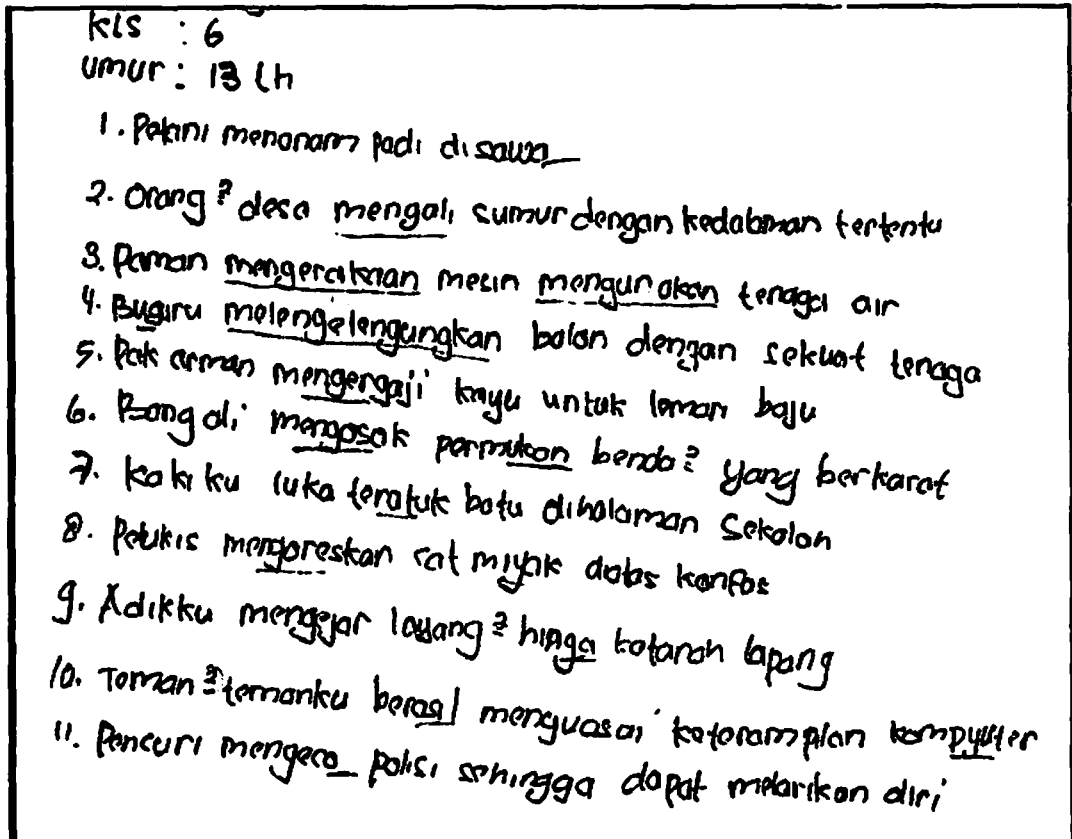 kls : 6
umur : 13 th
1. Petani menanam padi disawa_
2. Orang² desa mengali sumur dengan kedalaman tertentu
3. Paman mengerakaan mesin mengunakan tenaga air
4. Buguru melengelengungkan balon dengan sekuat tenaga
5. Pak arman mengergaji kayu untuk lemari baju
6. Bang ali mengosok permukan benda² yang berkarat
7. kaki ku luka teratuk batu dihalaman Sekolah
8. Pelukis mengoreskan cat miyak diatas kanfas
9. Adikku mengejar layang² hinga ketanah lapang
10. Teman² temanku
menguasai keteramplan
11. Pencuri mengeco_ polisi sehingga dapat melarikan diri